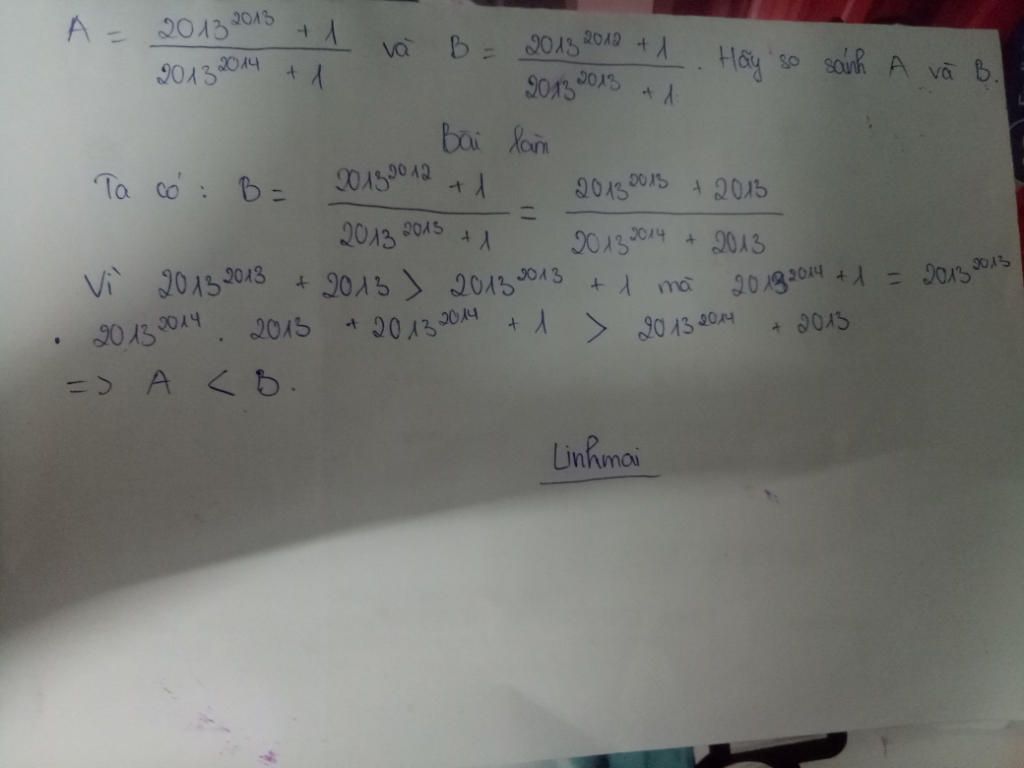 A = (2013^2013 + 1)/(2013^2014 + 1) và B = (2013^2012 + 1)/(2013^2013 + 1). Hãy so sánh A và B.
Bài làm
Ta có : B = (2013^2012 + 1)/(2013^2013 + 1) = (2013^2013 + 2013)/(2013^2014 + 2013)
Vì 2013^2013 + 2013 > 2013^2013 + 1 mà 2013^2014 + 1 = 2013^2013
. 2013^2014 . 2013 + 2013^2014 + 1 > 2013^2014 + 2013
=> A < B.
Linhmai